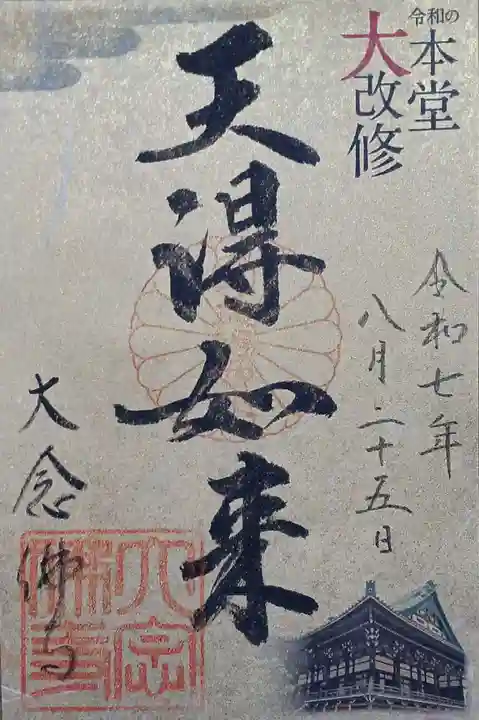 令和の
本堂
大改修
令和七年
八月二十五日
天得如来
大念佛寺